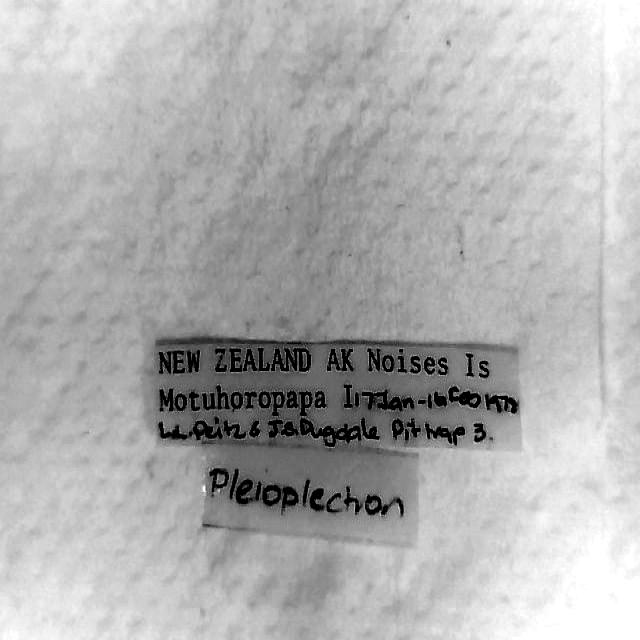 NEW ZEALAND AK Noises Is
Motuhoropapa I 17Jan-16Feb 1978
& J.S. Dugdale Pit trap 3.
Pleioplechon